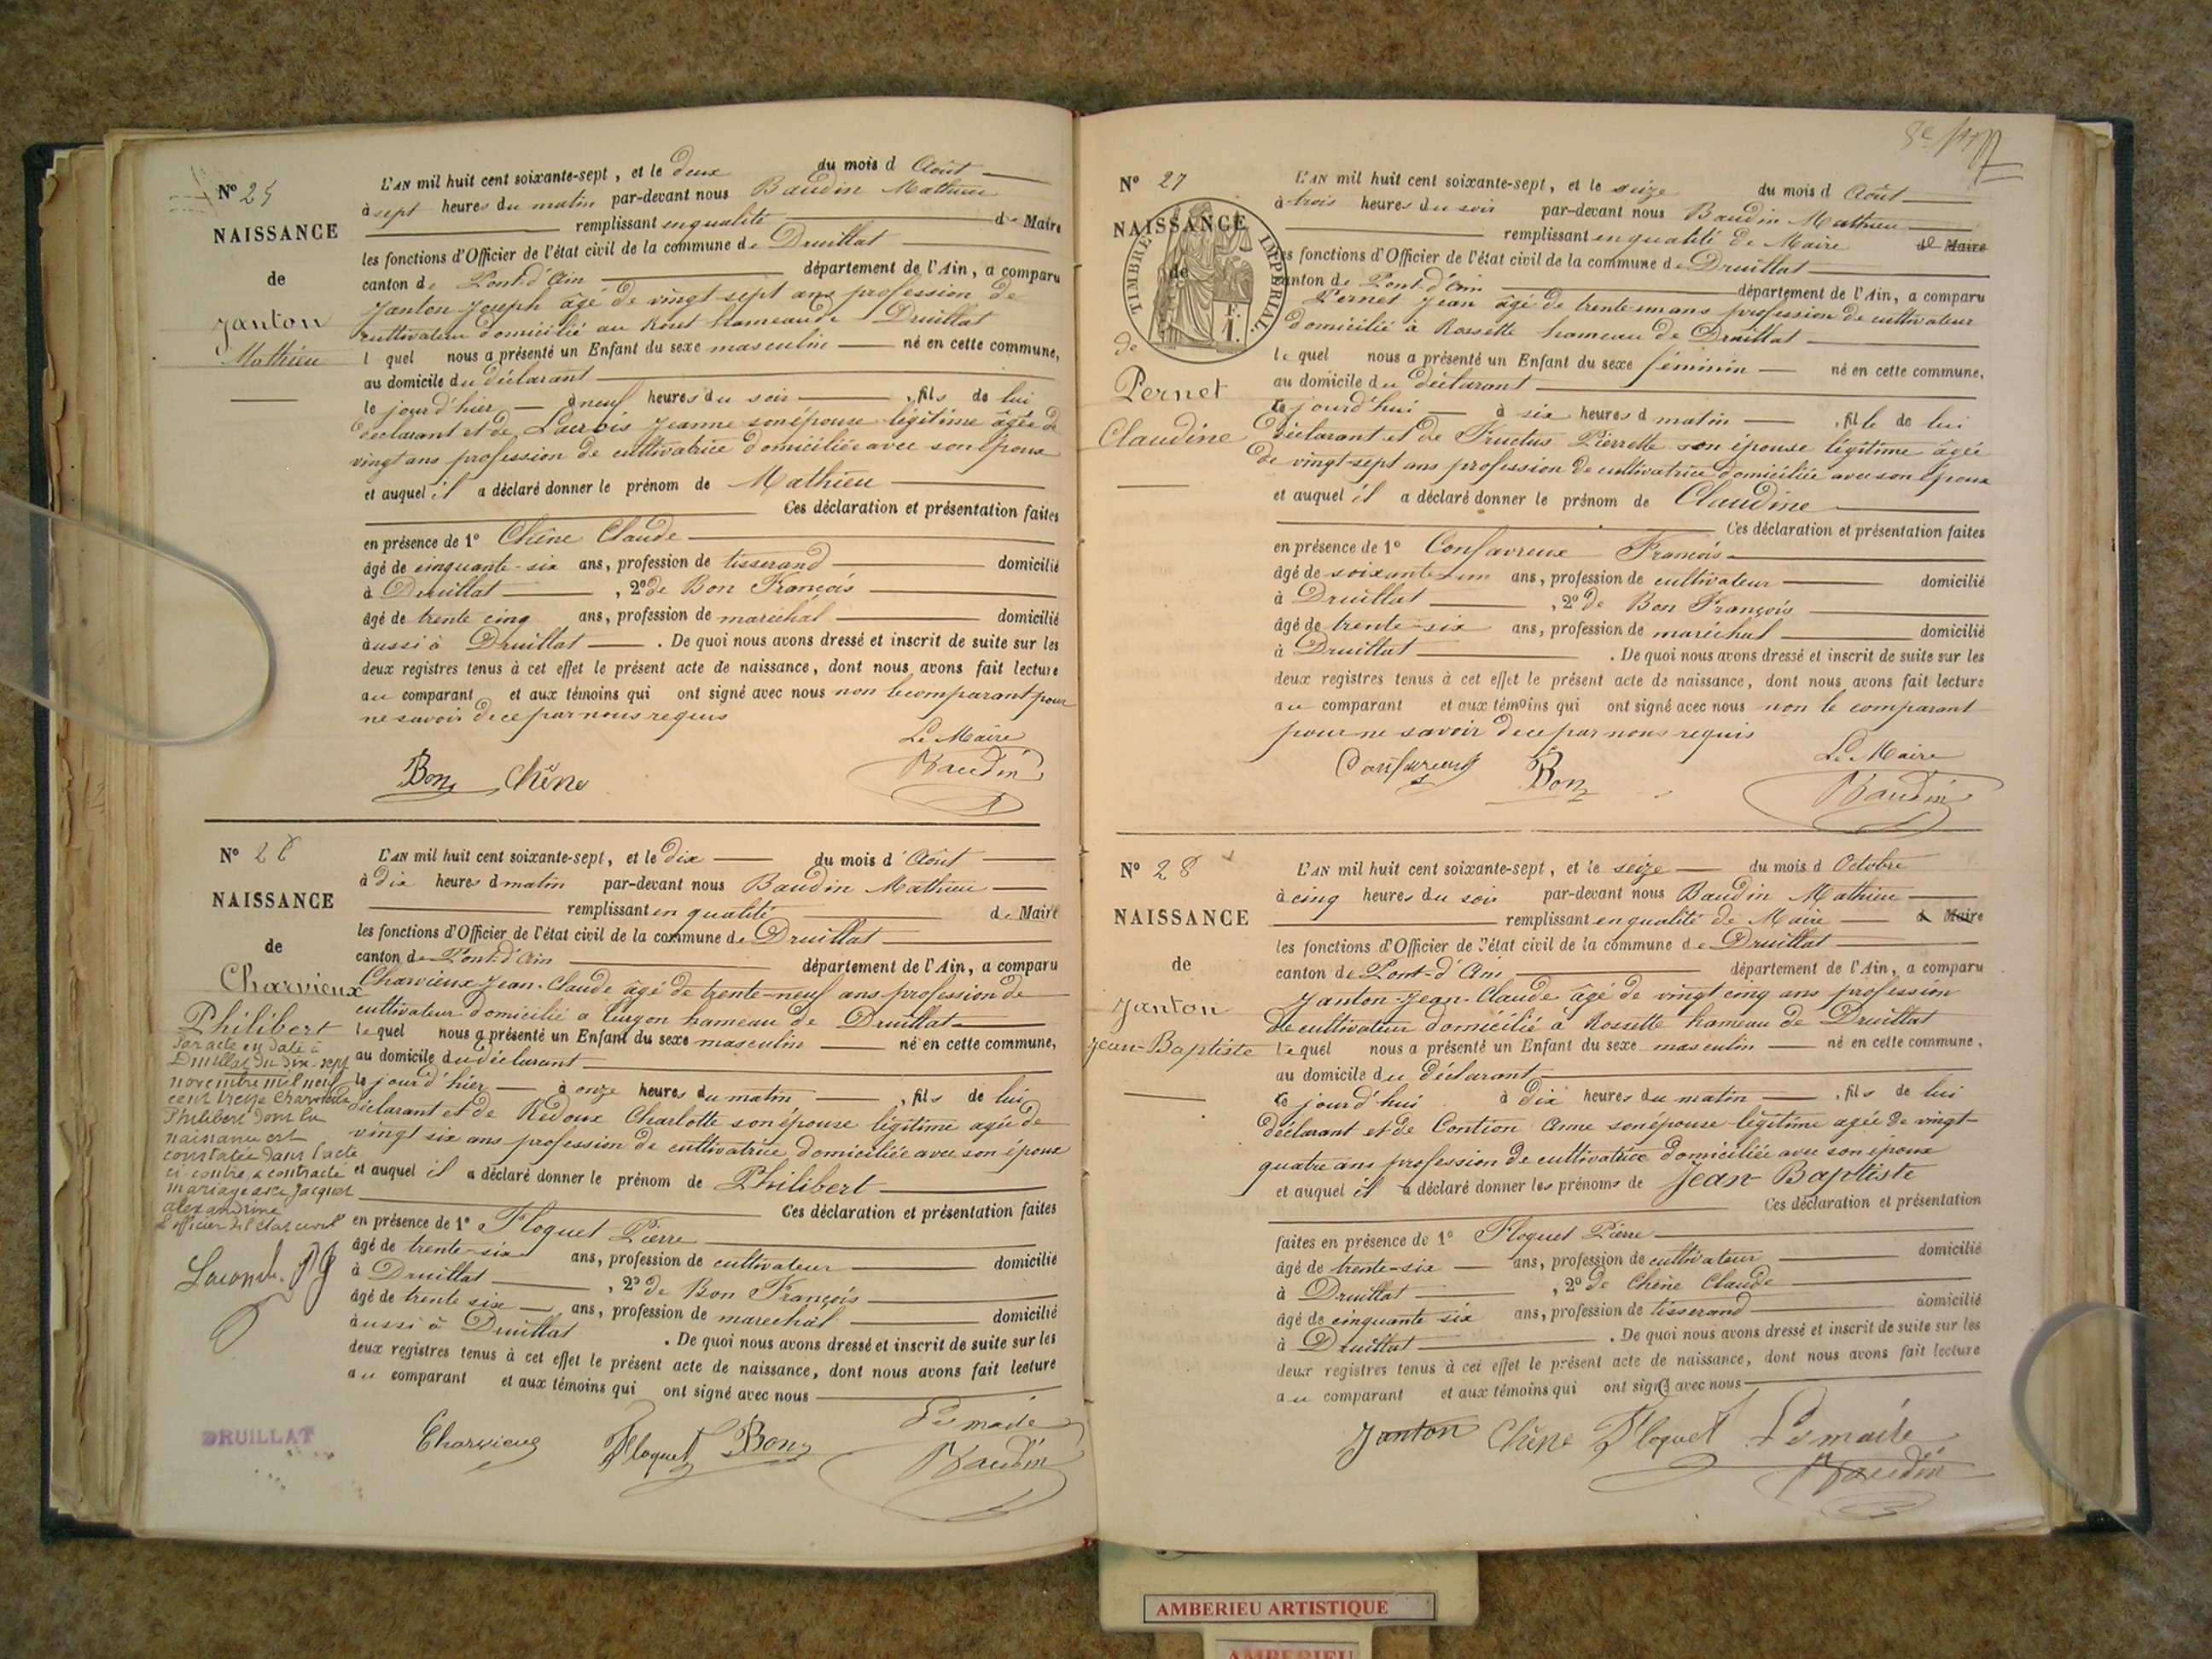 Nº 25
NAISSANCE
de
Janton
Mathieu
L'AN mil huit cent soixante-sept, et le deux du mois d Août
à sept heures du matin par-devant nous Baudin Mathieu
remplissant en qualité de Maire
les fonctions d'Officier de l'état civil de la commune de Druillat
canton de Pont-d'Ain département de l'Ain, a comparu
Janton Joseph âgé de vingt-sept ans profession de
cultivateur domicilié au hameau de Druillat
l quel nous a présenté un Enfant du sexe masculin né en cette commune,
au domicile du déclarant
le jour d'hier à neuf heures du soir, fils de lui
déclarant et de Jeanne son épouse légitime âgée de
vingt ans profession de cultivatrice domiciliée avec son époux
et auquel il a déclaré donner le prénom de Mathieu
Ces déclaration et présentation faites
en présence de 1º Chêne Claude
âgé de cinquante-six ans, profession de tisserand domicilié
à Druillat, 2º de Bon François
âgé de trente cinq ans, profession de maréchal domicilié
aussi à Druillat. De quoi nous avons dressé et inscrit de suite sur les
deux registres tenus à cet effet le présent acte de naissance, dont nous avons fait lecture
au comparant et aux témoins qui ont signé avec nous non le comparant pour
ne savoir de ce par nous requis
Le Maire
Bon Chêne Baudin
Nº 26
NAISSANCE
de
Charvieux
Philibert
Par acte en date à
Druillat du dix-sept
novembre mil neuf
cent treize Charvieux
Philibert dont la
naissance est
constatée dans l'acte
ci contre a contracté
mariage avec Jacquet
alexandrine
L'officier de l'état civil
DRUILLAT
L'AN mil huit cent soixante-sept, et le dix du mois d'Août
à dix heures d matin par-devant nous Baudin Mathieu
remplissant en qualité de Maire
les fonctions d'Officier de l'état civil de la commune de Druillat
canton de Pont-d'Ain département de l'Ain, a comparu
Charvieux Jean-Claude âgé de trente-neuf ans profession de
cultivateur domicilié à hameau de Druillat
lequel nous a présenté un Enfant du sexe masculin né en cette commune,
au domicile du déclarant
le jour d'hier à onze heures du matin, fils de lui
déclarant et de Redoux Charlotte son épouse légitime agée de
vingt six ans profession de cultivatrice domiciliée avec son époux
et auquel il a déclaré donner le prénom de Philibert
Ces déclaration et présentation faites
en présence de 1º Floquet Pierre
âgé de trente-six ans, profession de cultivateur domicilié
à Druillat, 2º de Bon François
âgé de trente six ans, profession de marechal domicilié
aussi à Druillat. De quoi nous avons dressé et inscrit de suite sur les
deux registres tenus à cet effet le présent acte de naissance, dont nous avons fait lecture
au comparant et aux témoins qui ont signé avec nous
Le maire
Charvieux Floquet Bon Baudin
Nº 27
NAISSANCE
TIMBRE IMPÉRIAL
F.
1.
de
de
Pernet
Claudine
L'AN mil huit cent soixante-sept, et le seize du mois d Août
à trois heures du soir par-devant nous Baudin Mathieu
remplissant en qualité de Maire de Maire
les fonctions d'Officier de l'état civil de la commune de Druillat
canton de Pont-d'Ain département de l'Ain, a comparu
Pernet Jean âgé de trente un ans profession de cultivateur
domicilié à Rossette hameau de Druillat
lequel nous a présenté un Enfant du sexe féminin né en cette commune,
au domicile du déclarant
ce jourd'hui à six heures d matin, fille de lui
déclarant et de Fructus Pierrette son épouse légitime âgée
de vingt-sept ans profession de cultivatrice domiciliée avec son époux
et auquel il a déclaré donner le prénom de Claudine
Ces déclaration et présentation faites
en présence de 1º Confavreux François
âgé de soixante-un ans, profession de cultivateur domicilié
à Druillat, 2º de Bon François
âgé de trente-six ans, profession de maréchal domicilié
à Druillat. De quoi nous avons dressé et inscrit de suite sur les
deux registres tenus à cet effet le présent acte de naissance, dont nous avons fait lecture
au comparant et aux témoins qui ont signé avec nous non le comparant
pour ne savoir de ce par nous requis
Le Maire
Confavreux Bon Baudin
Nº 28
NAISSANCE
de
Janton
Jean-Baptiste
L'AN mil huit cent soixante-sept, et le seize du mois d Octobre
à cinq heures du soir par-devant nous Baudin Mathieu
remplissant en qualité de Maire de Maire
les fonctions d'Officier de l'état civil de la commune de Druillat
canton de Pont-d'Ain département de l'Ain, a comparu
Janton-Jean-Claude âgé de vingt cinq ans profession
de cultivateur domicilié à Rossette hameau de Druillat
lequel nous a présenté un Enfant du sexe masculin né en cette commune,
au domicile du déclarant
ce jourd'hui à dix heures du matin, fils de lui
déclarant et de Contion Anne son épouse légitime agée de vingt-
quatre ans profession de cultivatrice domiciliée avec son époux
et auquel il a déclaré donner les prénoms de Jean Baptiste
Ces déclaration et présentation
faites en présence de 1º Floquet Pierre
âgé de trente-six ans, profession de cultivateur domicilié
à Druillat, 2º de Chêne Claude
âgé de cinquante six ans, profession de tisserand domicilié
à Druillat. De quoi nous avons dressé et inscrit de suite sur les
deux registres tenus à cet effet le présent acte de naissance, dont nous avons fait lecture
au comparant et aux témoins qui ont signé avec nous
Janton Chêne Floquet Le maire
Baudin
AMBERIEU ARTISTIQUE
AMBERIEU